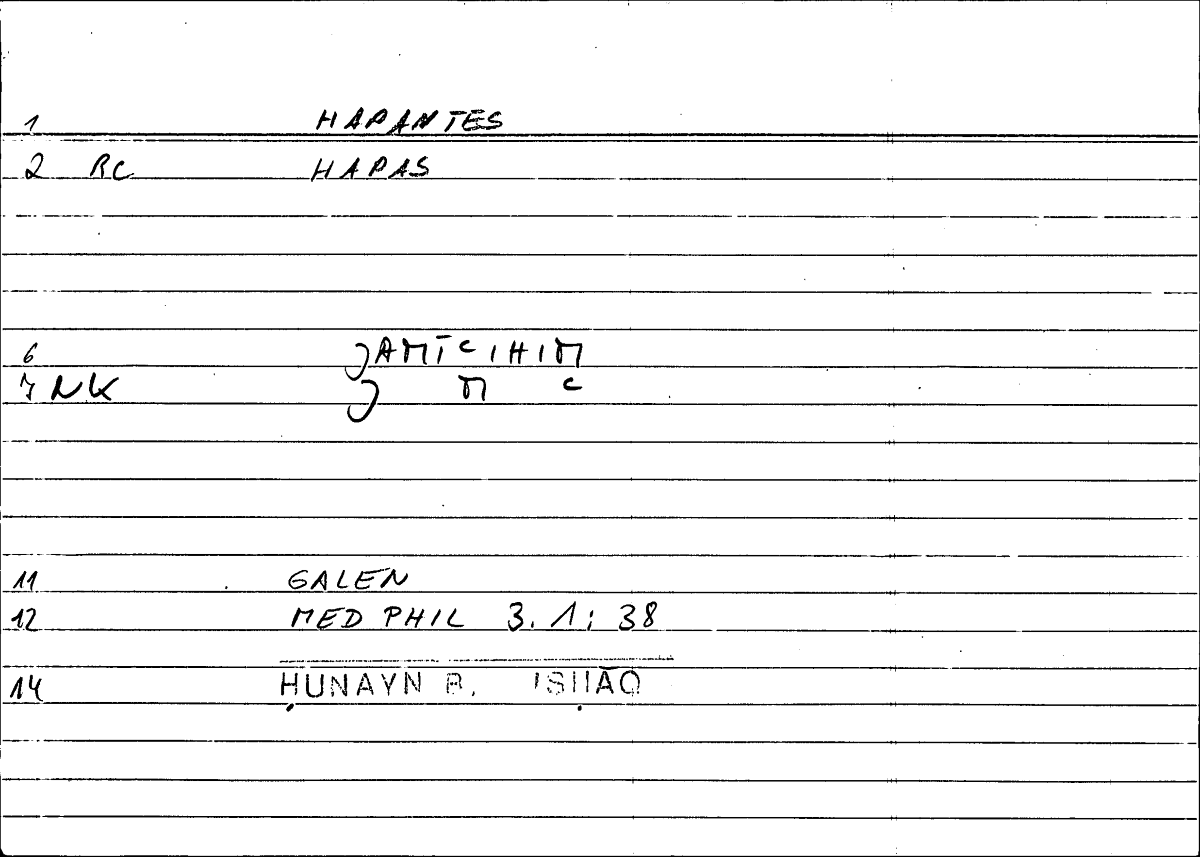 1 HAPANTES
2 RC HAPAS
6 ǦAMĪʿIHIM
7 NK Ǧ M ʿ
11 GALEN
12 MED PHIL 3. 1; 38
14 ḤUNAYN B. ISḤĀQ